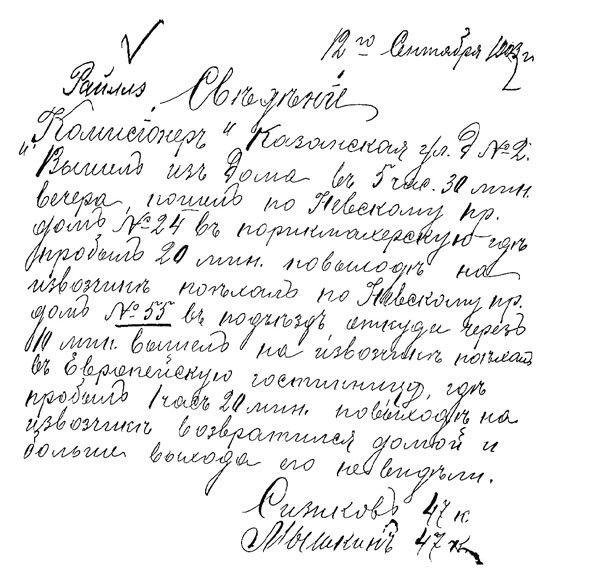 12го Сентября 1903 г
Райллэ. Свѣдѣнiй
„Комисiонеръ“ Казанская ул. д №2.
Вышелъ изъ дома въ 5 час. 30 мин.
вечера, пошелъ по Невскому пр.
домъ №24 въ порикмахерскую гдѣ
пробылъ 20 мин. повыходѣ на
извозчикѣ поѣхалъ по Невскому пр.
домъ №55 въ подъѣздъ откуда черезъ
10 мин. вышелъ на извозчикѣ поѣхалъ
въ Европейскую гостинницу, гдѣ
пробылъ 1 часъ 20 мин. повыходѣ на
извозчикѣ возвратился домой и
больше выхода его не видѣли.
Сизиковъ 47 к
Мышкинъ 47 к